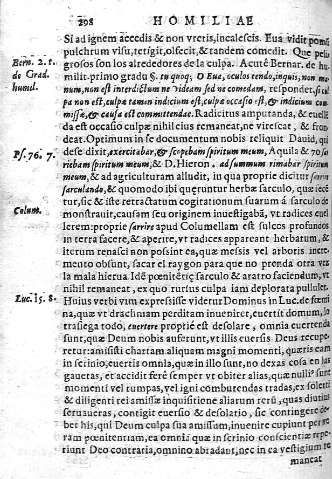 298 HOMILIAE
Si ad ignem accedis & non vreris, incalescis. Eua vidit pomũ
pulchrum visu, tetigit, olfecit, & tandem comedit. Que peli-
Bern. 2. t. grosos son los alrededores de la culpa. Acutè Bernar. de hu
de Grad. milit. primo gradu §. tu quoq; O Eua, oculos tendo, inquis, non ma
humil. num, non est interdictum ne videam sed ne comedam, respondet, si cul
pa non est, culpæ tamen indicium est, culpa occasio est, & indicium com
missæ, & causa est committendæ. Radicitus amputanda, & euellẽ
da est occasio culpæ nihil eius remaneat, ne virescat, & fron
deat. Optimum in se documentum nobis reliquit Dauid, qui
Ps. 76. 7. de se dixit, exercitabar, & scopebam spiritum meum, Aquila &
riebam spiritum meum, & D. Hieron. spiritum
meum, & ad agriculturam alludit, in qua proprie dicitur
sarculanda, & quomodo ibi queruntur herbæ sarculo, quæ
tur, sic & iste retractatum cogitationum suarum á sarculo de
Colum. monstrauit, causam seu originem inuestigabã, vt radices euel
lerem: proprie sarrire apud Columellam est sulcos profundos
in terra facere, & aperire, vt radices appareant herbatum, &
iterum renasci non possint ea, quæ messis vel arboris incre-
mento obsunt, sacar el raygon para que no prenda otra vez
la mala hierua. Idẽ pœnitẽtiæ sarculo & aratro faciendum, vt
nihil remaneat, ex quo rursus culpa iam deplorata pullulet.
Luc. 15. 8. Huius verbi vim expressisse videtur Dominus in Luc. de fœmi
na, quæ vt drachmam perditam inueniret, euertit domum, lo
trasiega todo, euertere propriè est desolare, omnia euerrenda
sunt, quæ Deum nobis auferunt, vt illis euersis Deus recupe-
retur: amissisti chartam aliquam magni momenti, quæris eam
in scrinio, euertis omnia, quæ in illo sunt, no dexas cosa en lu
gar, et accidit ferè semper vt
momenti vel rumpas, vel igni comburendas tradas, ex soleti
& diligenti rei amissæ inquisitione aliarum rerũ, quas diutius
seruaueras, contigit euersio & desolatio, sic contingere de-
ber his, qui Deum culpa sua amissum, inuenire cupiunt per ve
ram pœnitentiam, ea omnia quæ in scrinio conscientiæ repe-
riunt Deo contraria, omnino abradant, nec in ea vestigium re
maneat